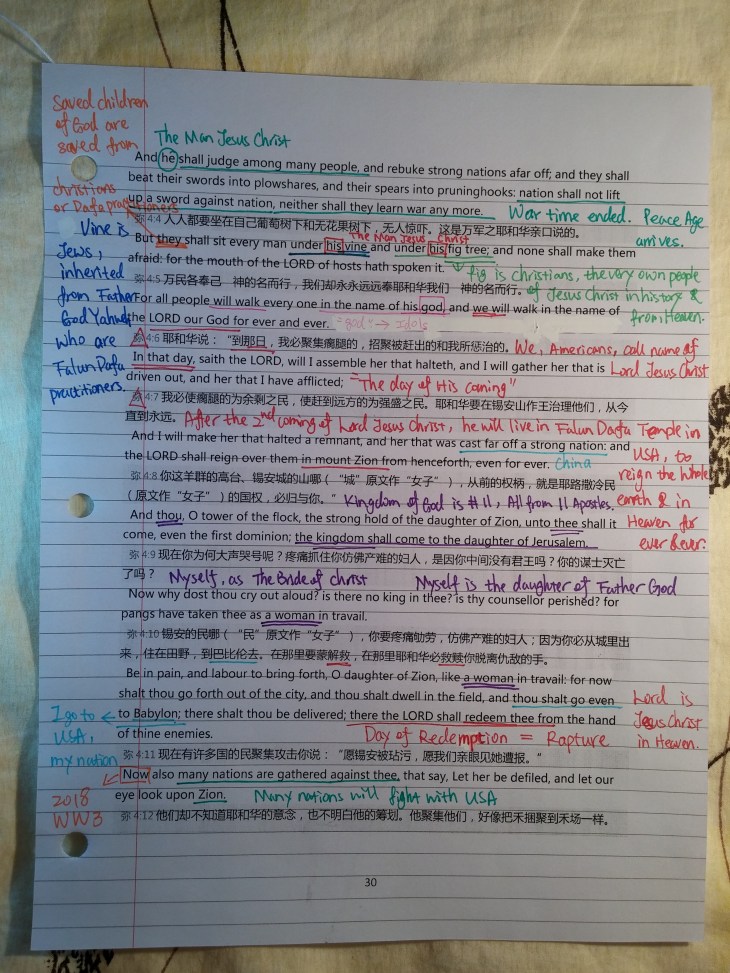 saved children
of God are
saved from
christians
or Dafa practitioners
The Man Jesus Christ
And he shall judge among many people, and rebuke strong nations afar off; and they shall
beat their swords into plowshares, and their spears into pruninghooks: nation shall not lift
up a sword against nation, neither shall they learn war any more.
War time ended. Peace Age
arrives.
弥 4:4 人人都要坐在自己葡萄树下和无花果树下，无人惊吓。这是万军之耶和华亲口说的。
The Man Jesus Christ
But they shall sit every man under his vine and under his fig tree; and none shall make them
afraid: for the mouth of the LORD of hosts hath spoken it.
fig is christians, the very own people
of Jesus Christ in history &
from Heaven.
Vine is
Jews,
inherited
from Father
God Yahweh
who are
Falun Dafa
practitioners.
弥 4:5 万民各奉己　神的名而行，我们却永永远远奉耶和华我们　神的名而行。
For all people will walk every one in the name of his god, and we will walk in the name of
the LORD our God for ever and ever.
"god" → Idols
弥 4:6 耶和华说："到那日，我必聚集瘸腿的，招聚被赶出的和我所惩治的。
We, Americans, call name of
Lord Jesus Christ
In that day, saith the LORD, will I assemble her that halteth, and I will gather her that is
driven out, and her that I have afflicted;
"The day of His coming"
弥 4:7 我必使瘸腿的为余剩之民，使赶到远方的为强盛之民。耶和华要在锡安山作王治理他们，从今
直到永远。
After the 2nd coming of Lord Jesus Christ, he will live in Falun Dafa Temple in
USA, to
reign the whole
earth & in
Heaven for
ever & ever.
And I will make her that halted a remnant, and her that was cast far off a strong nation: and
the LORD shall reign over them in mount Zion from henceforth, even for ever.
China
弥 4:8 你这羊群的高台、锡安城的山哪（"城"原文作"女子"），从前的权柄，就是耶路撒冷民
（原文作"女子"）的国权，必归与你。"
Kingdom of God is #11, All from 11 Apostles.
And thou, O tower of the flock, the strong hold of the daughter of Zion, unto thee shall it
come, even the first dominion; the kingdom shall come to the daughter of Jerusalem.
弥 4:9 现在你为何大声哭号呢？疼痛抓住你仿佛产难的妇人，是因你中间没有君王吗？你的谋士灭亡
了吗？
Myself, as The Bride of christ
Myself is the daughter of Father God
Now why dost thou cry out aloud? is there no king in thee? is thy counsellor perished? for
pangs have taken thee as a woman in travail.
弥 4:10 锡安的民哪（"民"原文作"女子"），你要疼痛劬劳，仿佛产难的妇人；因为你必从城里出
来，住在田野，到巴比伦去。在那里要蒙解救，在那里耶和华必救赎你脱离仇敌的手。
Be in pain, and labour to bring forth, O daughter of Zion, like a woman in travail: for now
shalt thou go forth out of the city, and thou shalt dwell in the field, and thou shalt go even
to Babylon; there shalt thou be delivered; there the LORD shall redeem thee from the hand
of thine enemies.
I go to
USA,
my nation
Day of Redemption = Rapture
Lord is
Jesus Christ
in Heaven.
弥 4:11 现在有许多国的民聚集攻击你说："愿锡安被玷污，愿我们亲眼见她遭报。"
Now also many nations are gathered against thee, that say, Let her be defiled, and let our
eye look upon Zion.
Many nations will fight with USA
2018
WW3
弥 4:12 他们却不知道耶和华的意念，也不明白他的筹划。他聚集他们，好像把禾捆聚到禾场一样。
30